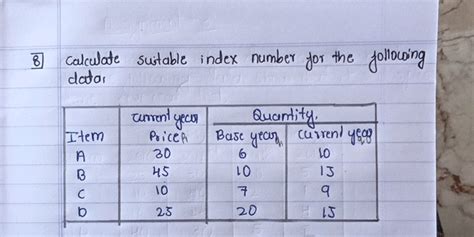 8] Calculate suitable index number for the following
data:
current year Quantity.
Item Price P₁ Base year current year
A 30 6 10
B 45 10 15
C 10 7 9
D 25 20 15